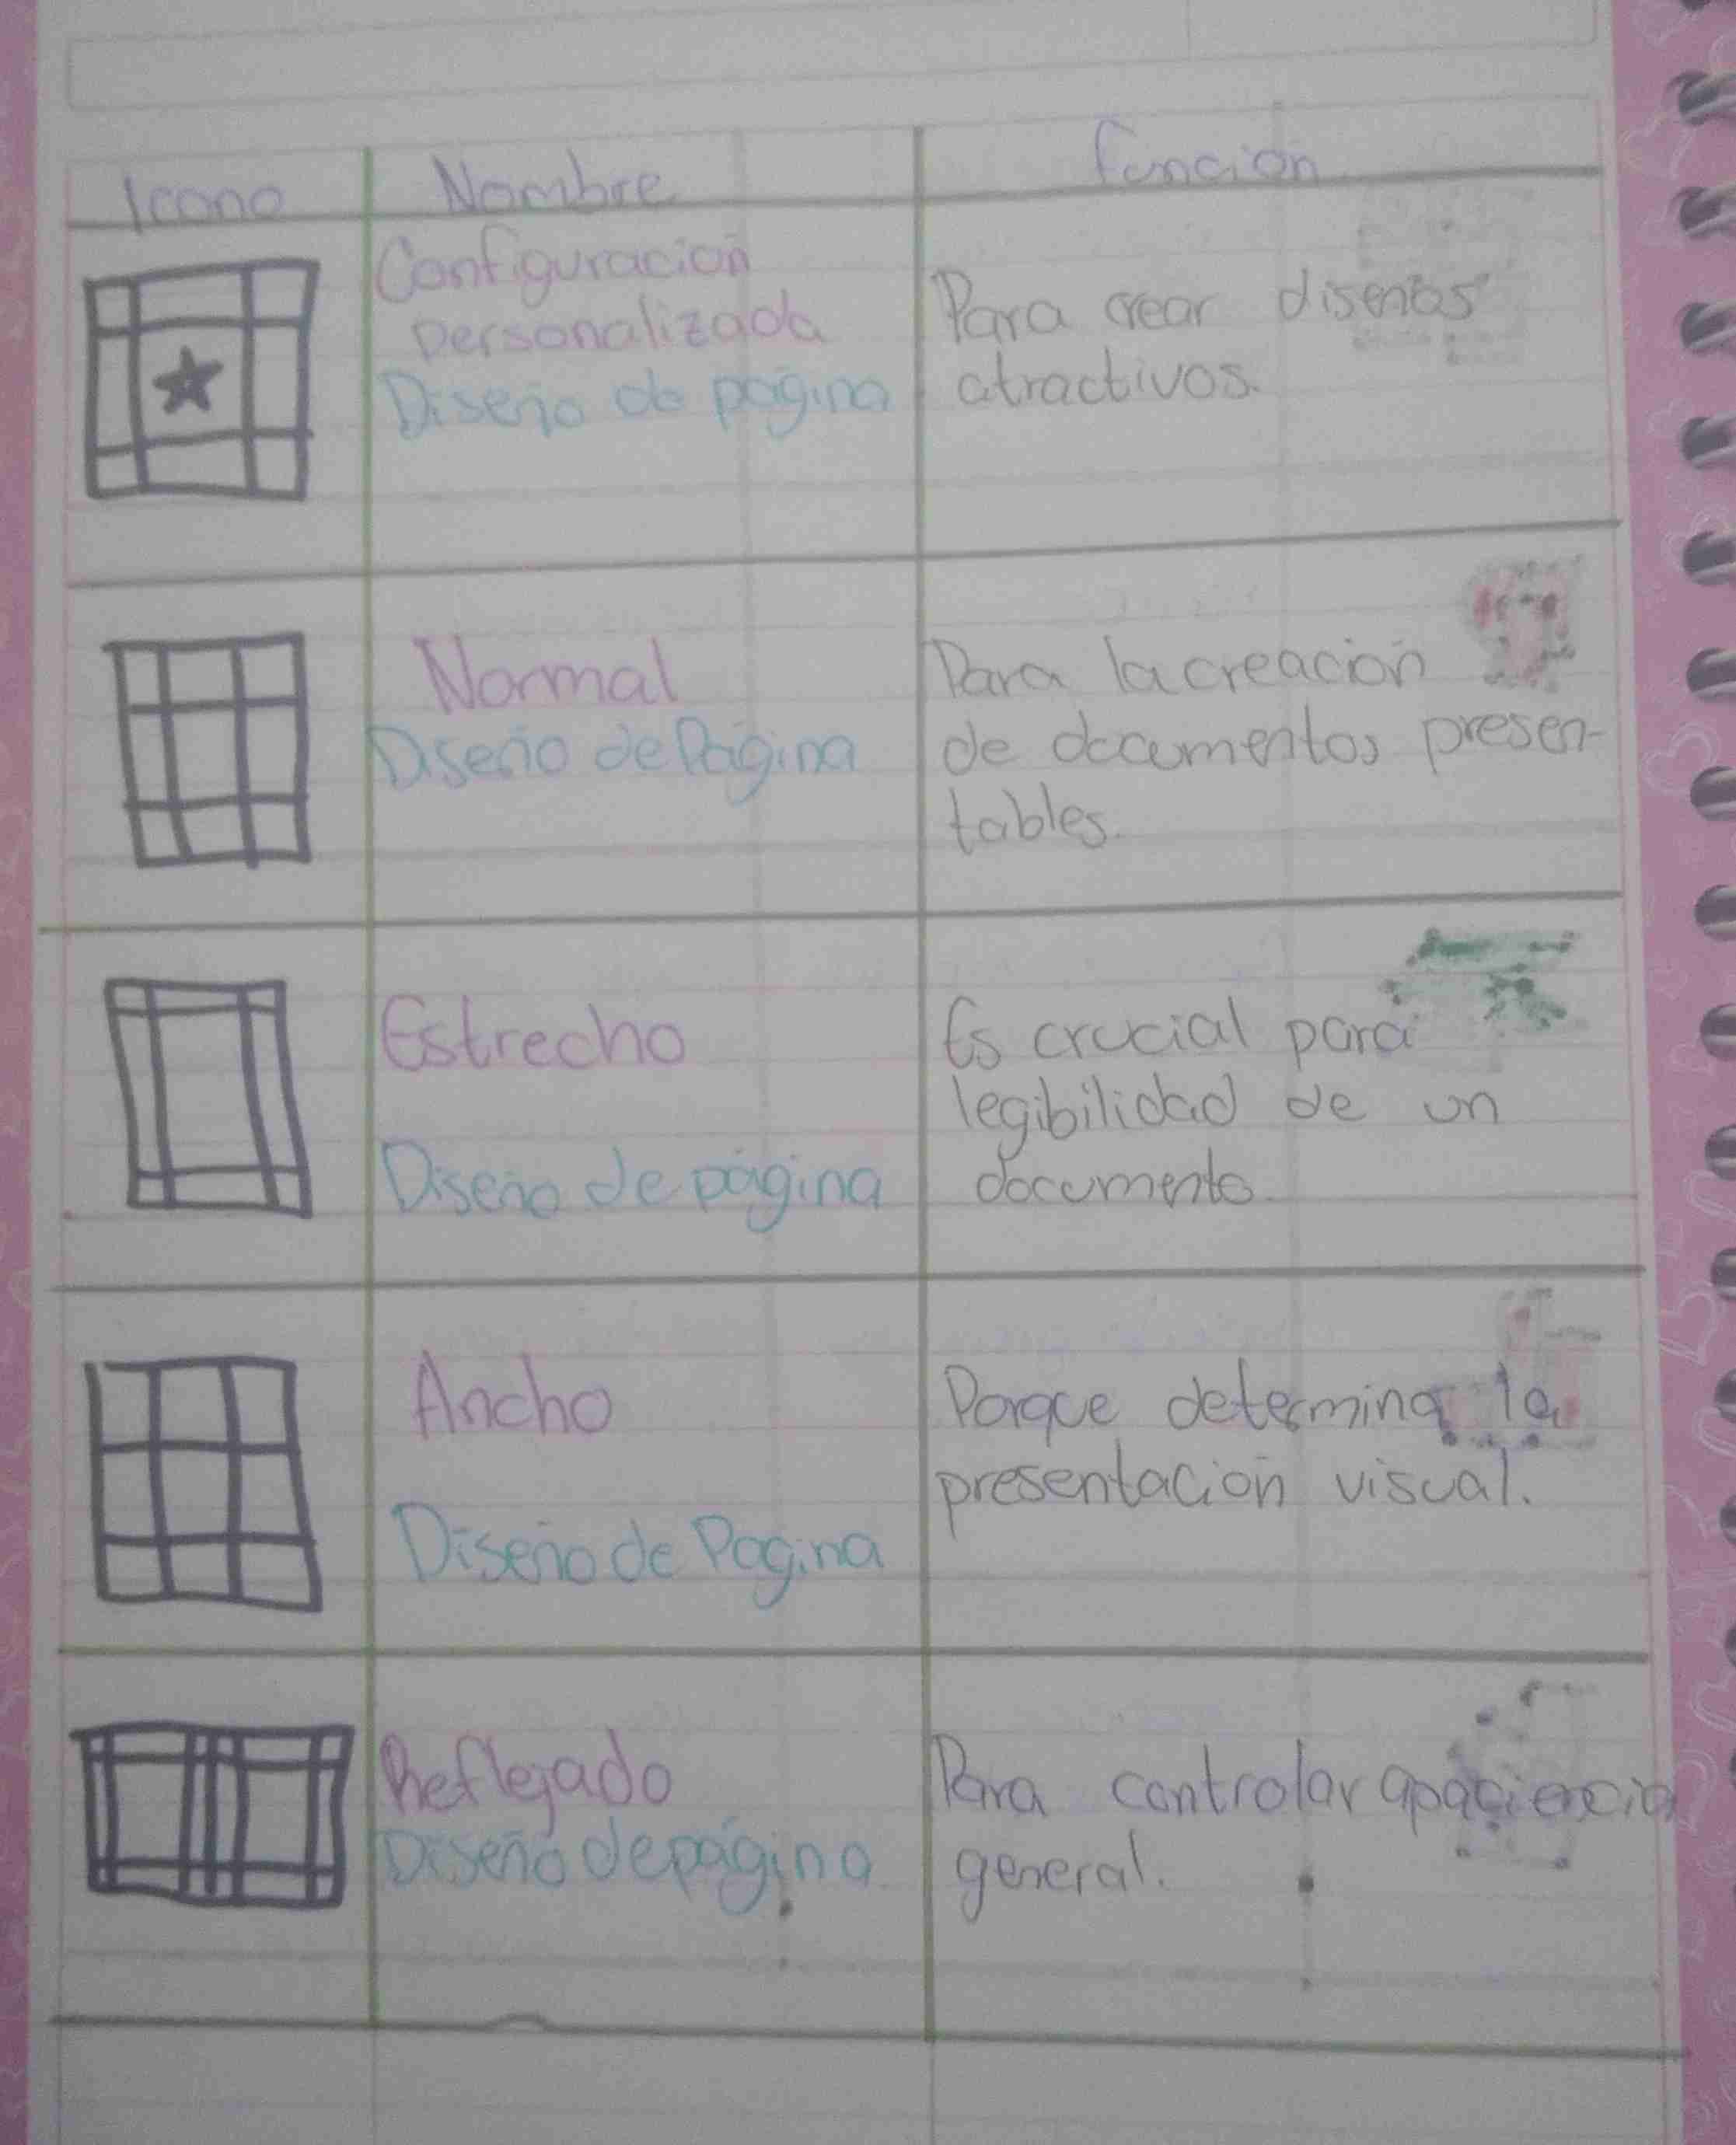 Icono Nombre función
Configuración
personalizada
Diseño de página
Para crear diseños
atractivos.
Normal
Diseño de Página
Para la creación
de documentos presen-
tables.
Estrecho
Diseño de página
Es crucial para
legibilidad de un
documento
Ancho
Diseño de Pagina
Porque determina la
presentación visual.
Reflejado
Diseño de página
Para controlar
general.